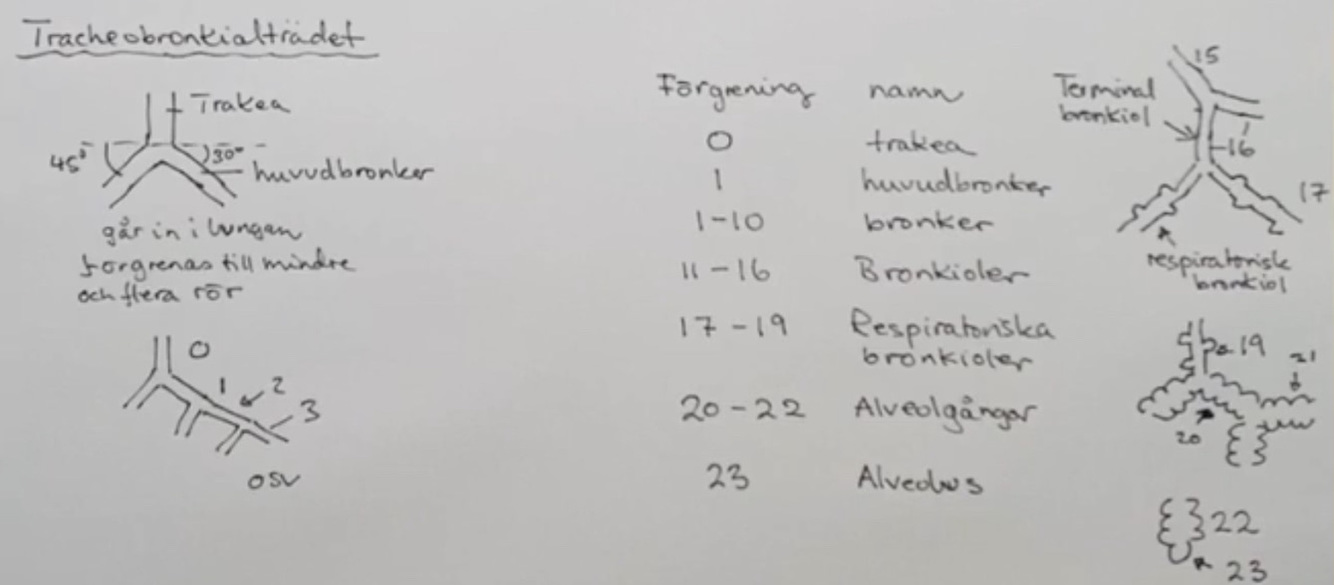 Tracheobronkialträdet
Trakea
45°
30°
huvudbronker
går in i lungan
förgrenas till mindre
och flera rör
0
1
2
3
osv
Förgrening namn
0 trakea
1 huvudbronker
1-10 bronker
11-16 Bronkioler
17-19 Respiratoriska
bronkioler
20-22 Alveolgångar
23 Alveolus
15
Terminal
bronkiol
16
17
respiratorisk
bronkiol
19
21
20
22
23